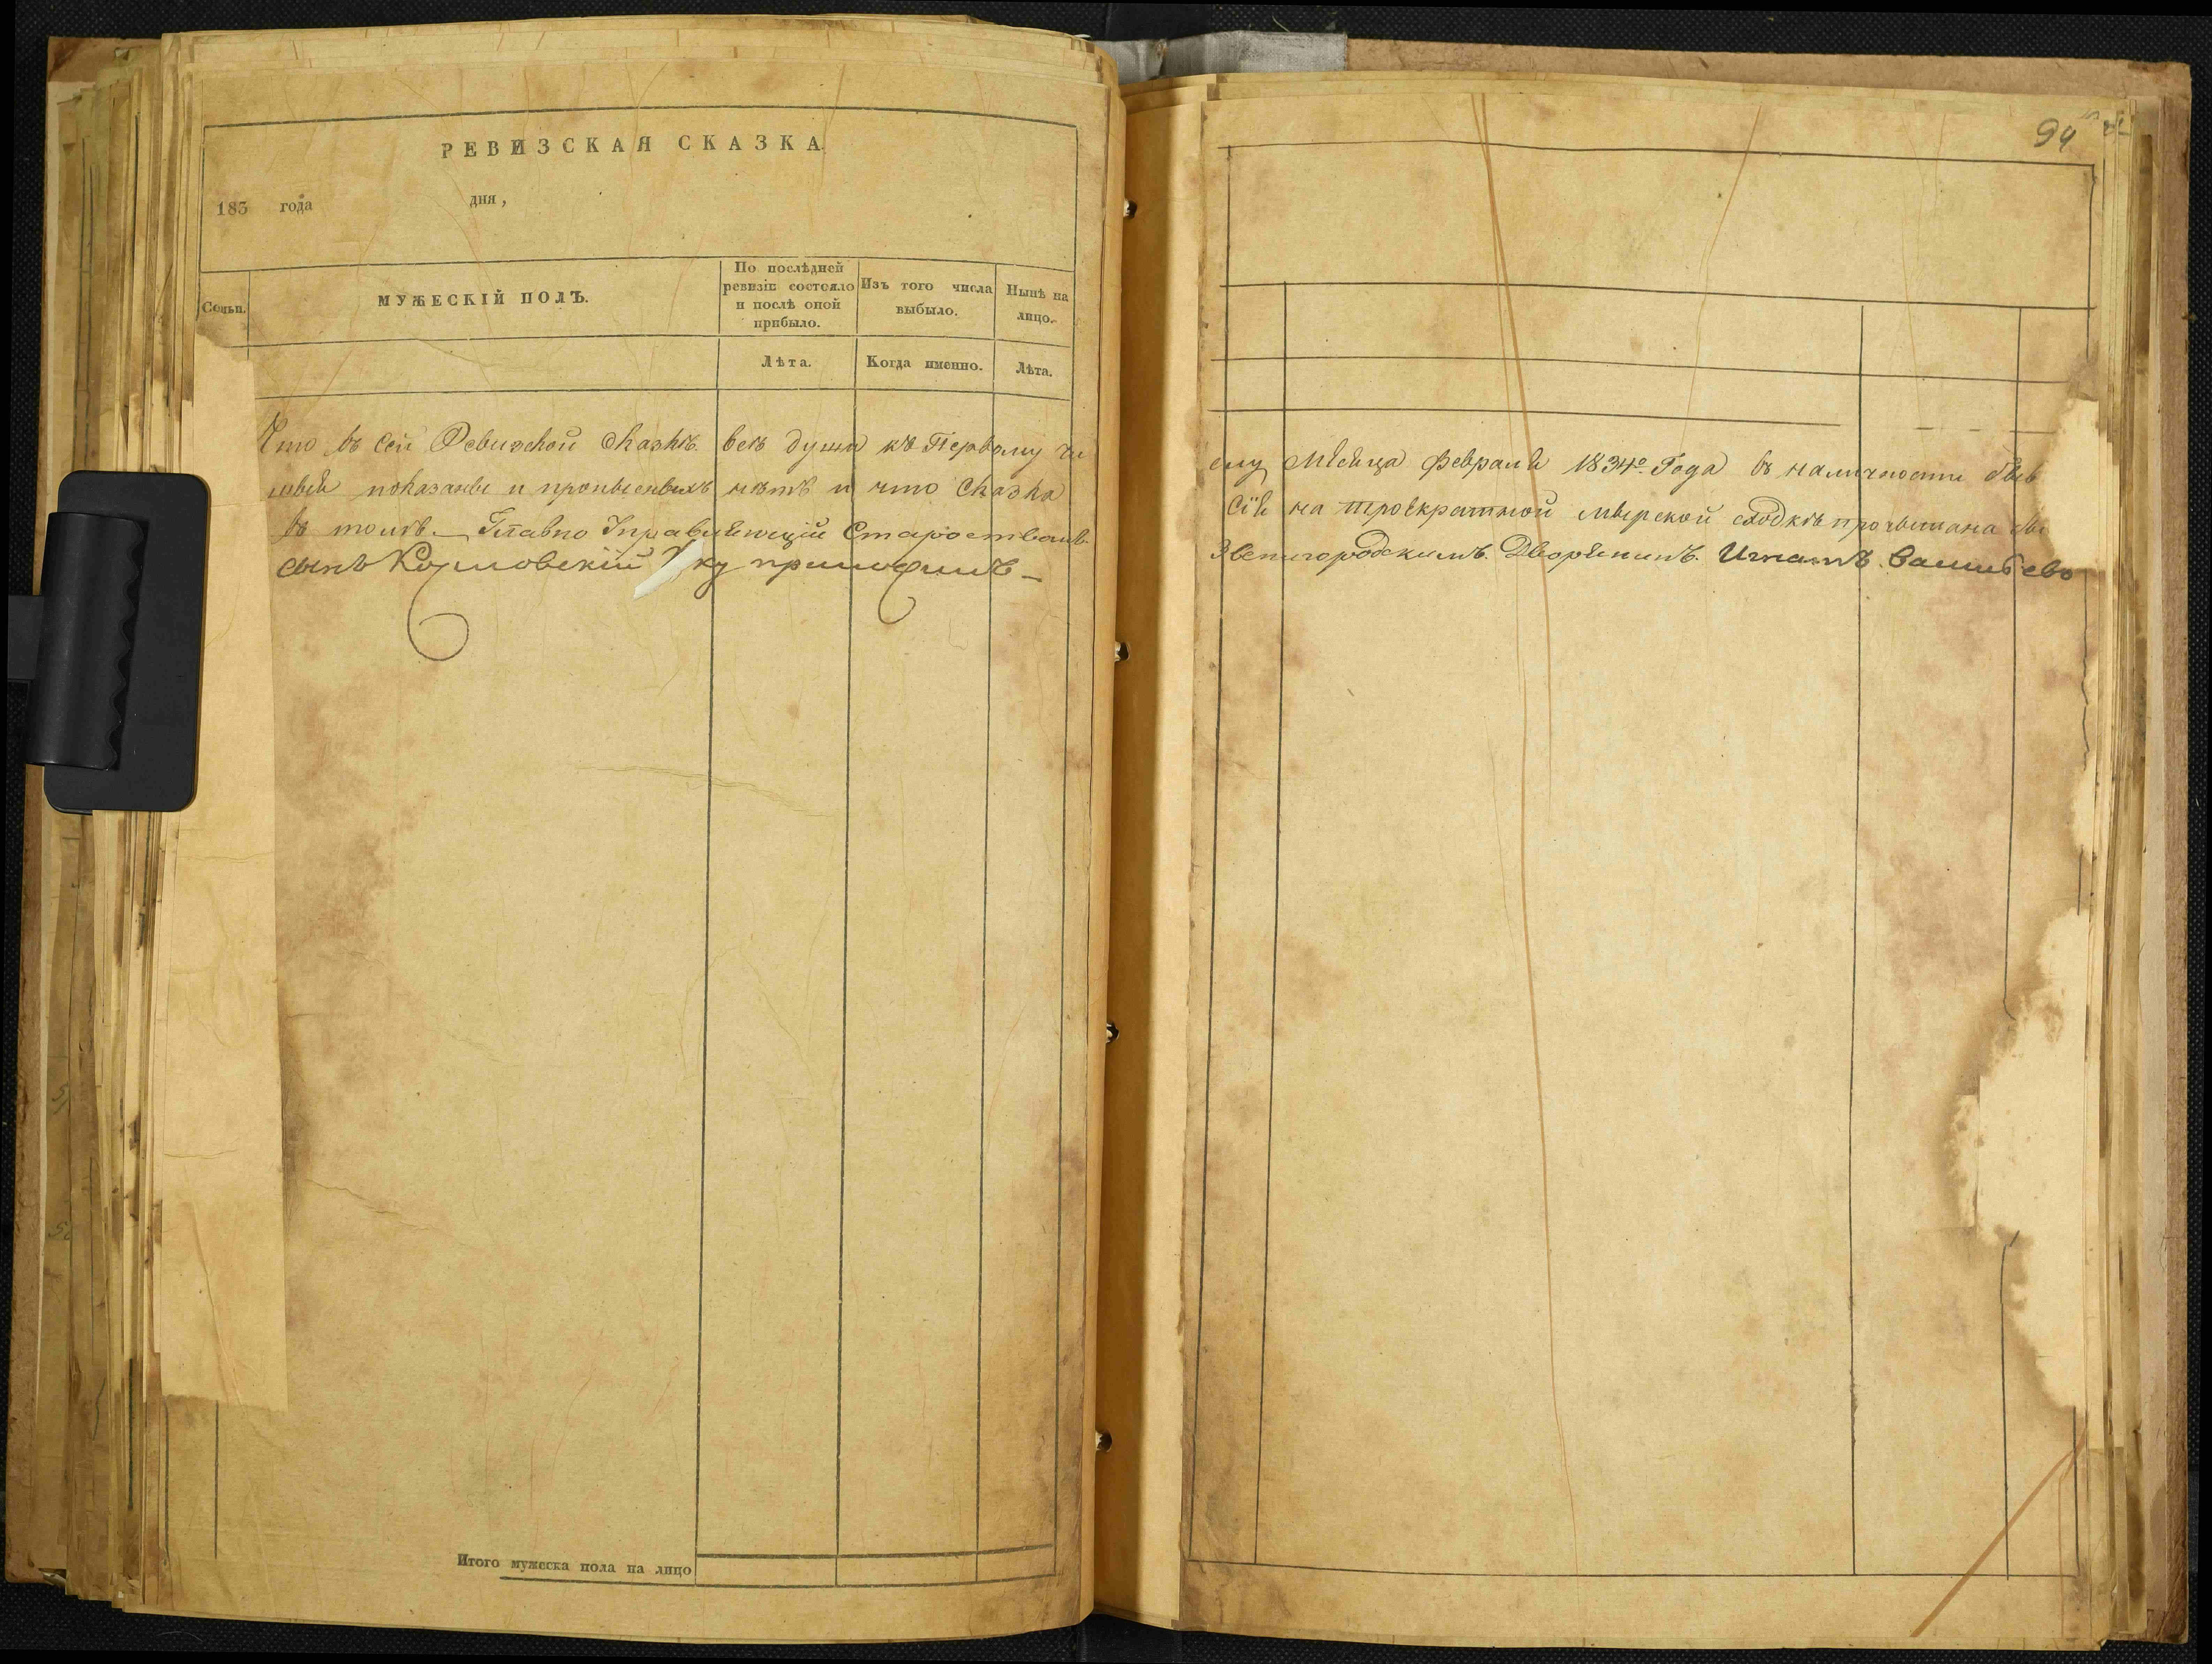 РЕВИЗСКАЯ СКАЗКА.
183 года дня,
Семьи.
МУЖЕСКІЙ ПОЛЪ.
По послѣдней
ревизіи состояло
и послѣ оной
прибыло.
Изъ того числа
выбыло.
Нынѣ на
лицо.
Лѣта.
Когда именно.
Лѣта.
Что въ сей Ревизской Сказкѣ всѣ души къ Первому чи
показаны и прописныхъ нѣтъ и что Сказка
въ томъ. Главно Управляющій Староствомъ
сынъ Козловскій руку приложилъ
Итого мужеска пола на лицо
94
Мѣсяца Февраля 1834го Года въ наличности быв
сія на троекратной мирской сходкѣ прочитана
Звенигородскимъ Дворянинъ Игнатъ